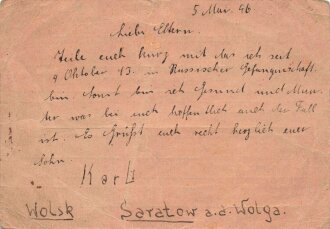 5 Mai. 46.
Liebe Eltern.
Teile euch kurz mit das ich seit
9 Oktober 43. in Russischer Gefangenschaft
bin. Sonst bin ich Gesund und Mun-
ter was bei euch hoffentlich auch der Fall
ist. Es Grüßt euch recht herzlich euer
Sohn
Karl
Wolsk Saratow a.d. Wolga.